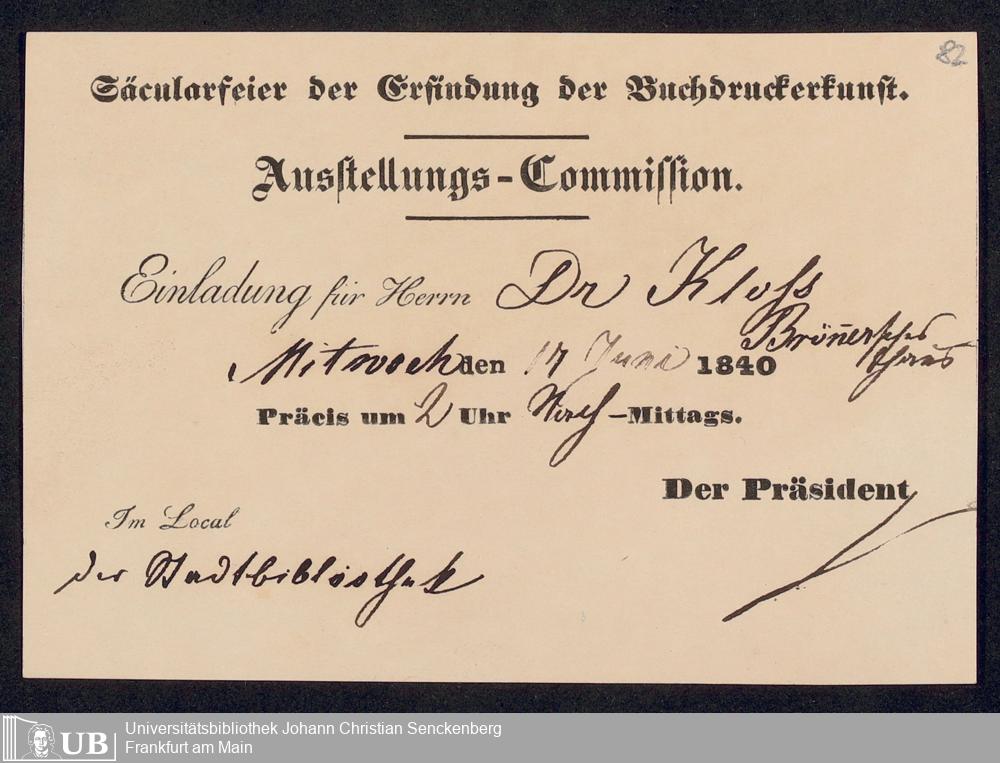 82
Säcularfeier der Erfindung der Buchdruckerkunst.
Ausstellungs-Commission.
Einladung für Herrn Dr Kloss
Brönnersches Haus
Mitwoch den 17 Juni 1840
Präcis um 2 Uhr Nach-Mittags.
Der Präsident
Im Local
der Stadtbibliothek
UB Universitätsbibliothek Johann Christian Senckenberg
Frankfurt am Main